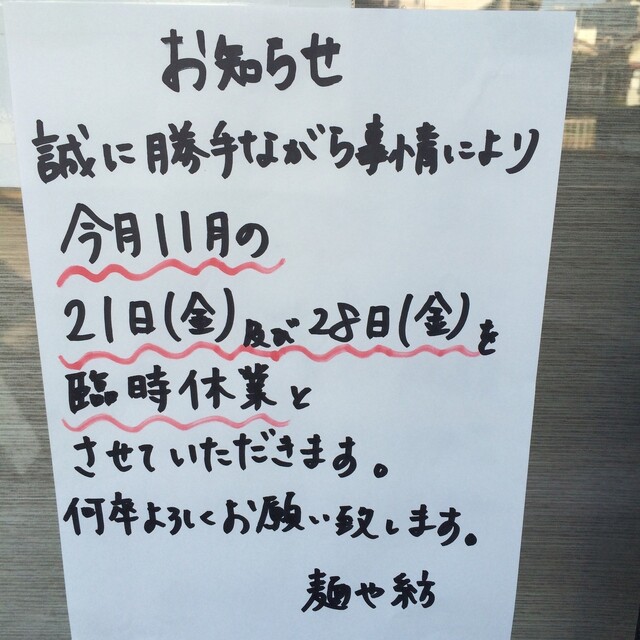 お知らせ
誠に勝手ながら事情により
今月11月の
21日(金)及び28日(金)を
臨時休業と
させていただきます。
何卒よろしくお願い致します。
麺や紡